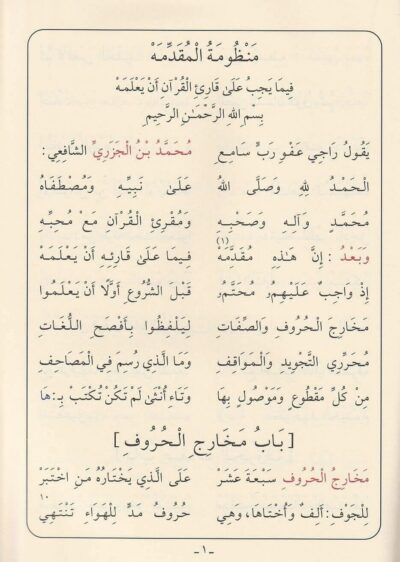 مَنْظُومَةُ الْمُقَدِّمَهْ
فِيمَا يَجِبُ عَلَىٰ قَارِئِ الْقُرْآنِ أَنْ يَعْلَمَهْ
بِسْمِ اللهِ الرَّحْمَـٰنِ الرَّحِيمِ
يَقُولُ رَاجِي عَفْوِ رَبٍّ سَامِعِ مُحَمَّدُ بْنُ الْجَزَرِيِّ الشَّافِعِي:
الْحَمْدُ لِلهِ وَصَلَّى اللهُ عَلَىٰ نَبِيِّهِ وَمُصْطَفَاهُ
مُحَمَّدٍ وَآلِهِ وَصَحْبِهِ وَمُقْرِئِ الْقُرْآنِ مَعْ مُحِبِّهِ
وَبَعْدُ: إِنَّ هَـٰذِهِ مُقَدِّمَهْ(١) فِيمَا عَلَىٰ قَارِئِهِ أَنْ يَعْلَمَهْ
إِذْ وَاجِبٌ عَلَيْهِمُ مُحَتَّمُ قَبْلَ الشُّرُوعِ أَوَّلًا أَنْ يَعْلَمُوا
مَخَارِجَ الْحُرُوفِ وَالصِّفَاتِ لِيَلْفِظُوا بِأَفْصَحِ اللُّغَاتِ
مُحَرِّرِي التَّجْوِيدِ وَالْمَوَاقِفِ وَمَا الَّذِي رُسِمَ فِي الْمَصَاحِفِ
مِنْ كُلِّ مَقْطُوعٍ وَمَوْصُولٍ بِهَا وَتَاءِ أُنْثَىٰ لَمْ تَكُنْ تُكْتَبْ بِـ:هَا
[بَابُ مَخَارِجِ الْحُرُوفِ]
مَخَارِجُ الْحُرُوفِ سَبْعَةَ عَشَرْ عَلَى الَّذِي يَخْتَارُهُ مَنِ اخْتَبَرْ
لِلْجَوْفِ: أَلِفٌ وَأُخْتَاهَا، وَهِي حُرُوفُ مَدٍّ لِلْهَوَاءِ تَنْتَهِي ١٠
-١-